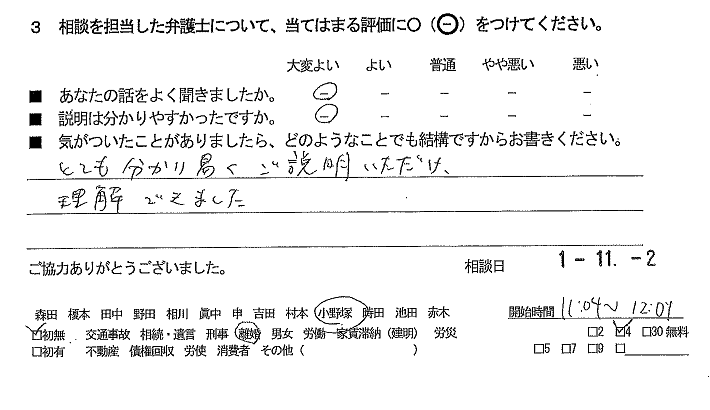 3 相談を担当した弁護士について、当てはまる評価に○(⊖)をつけてください。
大変よい よい 普通 やや悪い 悪い
■ あなたの話をよく聞きましたか。 － － － － －
■ 説明は分かりやすかったですか。 － － － － －
■ 気がついたことがありましたら、どのようなことでも結構ですからお書きください。
とても分かり易くご説明いただけ、
理解できました
ご協力ありがとうございました。
相談日 1-11.-2
森田 榎本 田中 野田 相川 眞中 申 吉田 村本 小野塚 時田 池田 赤木
開始時間 11:04〜12:04
☑初無 交通事故 相続・遺言 刑事 離婚 男女 労働 家賃滞納(建明) 労災
□2 ☑4 □30無料
□初有 不動産 債権回収 労使 消費者 その他( )
□5 □7 □9 □